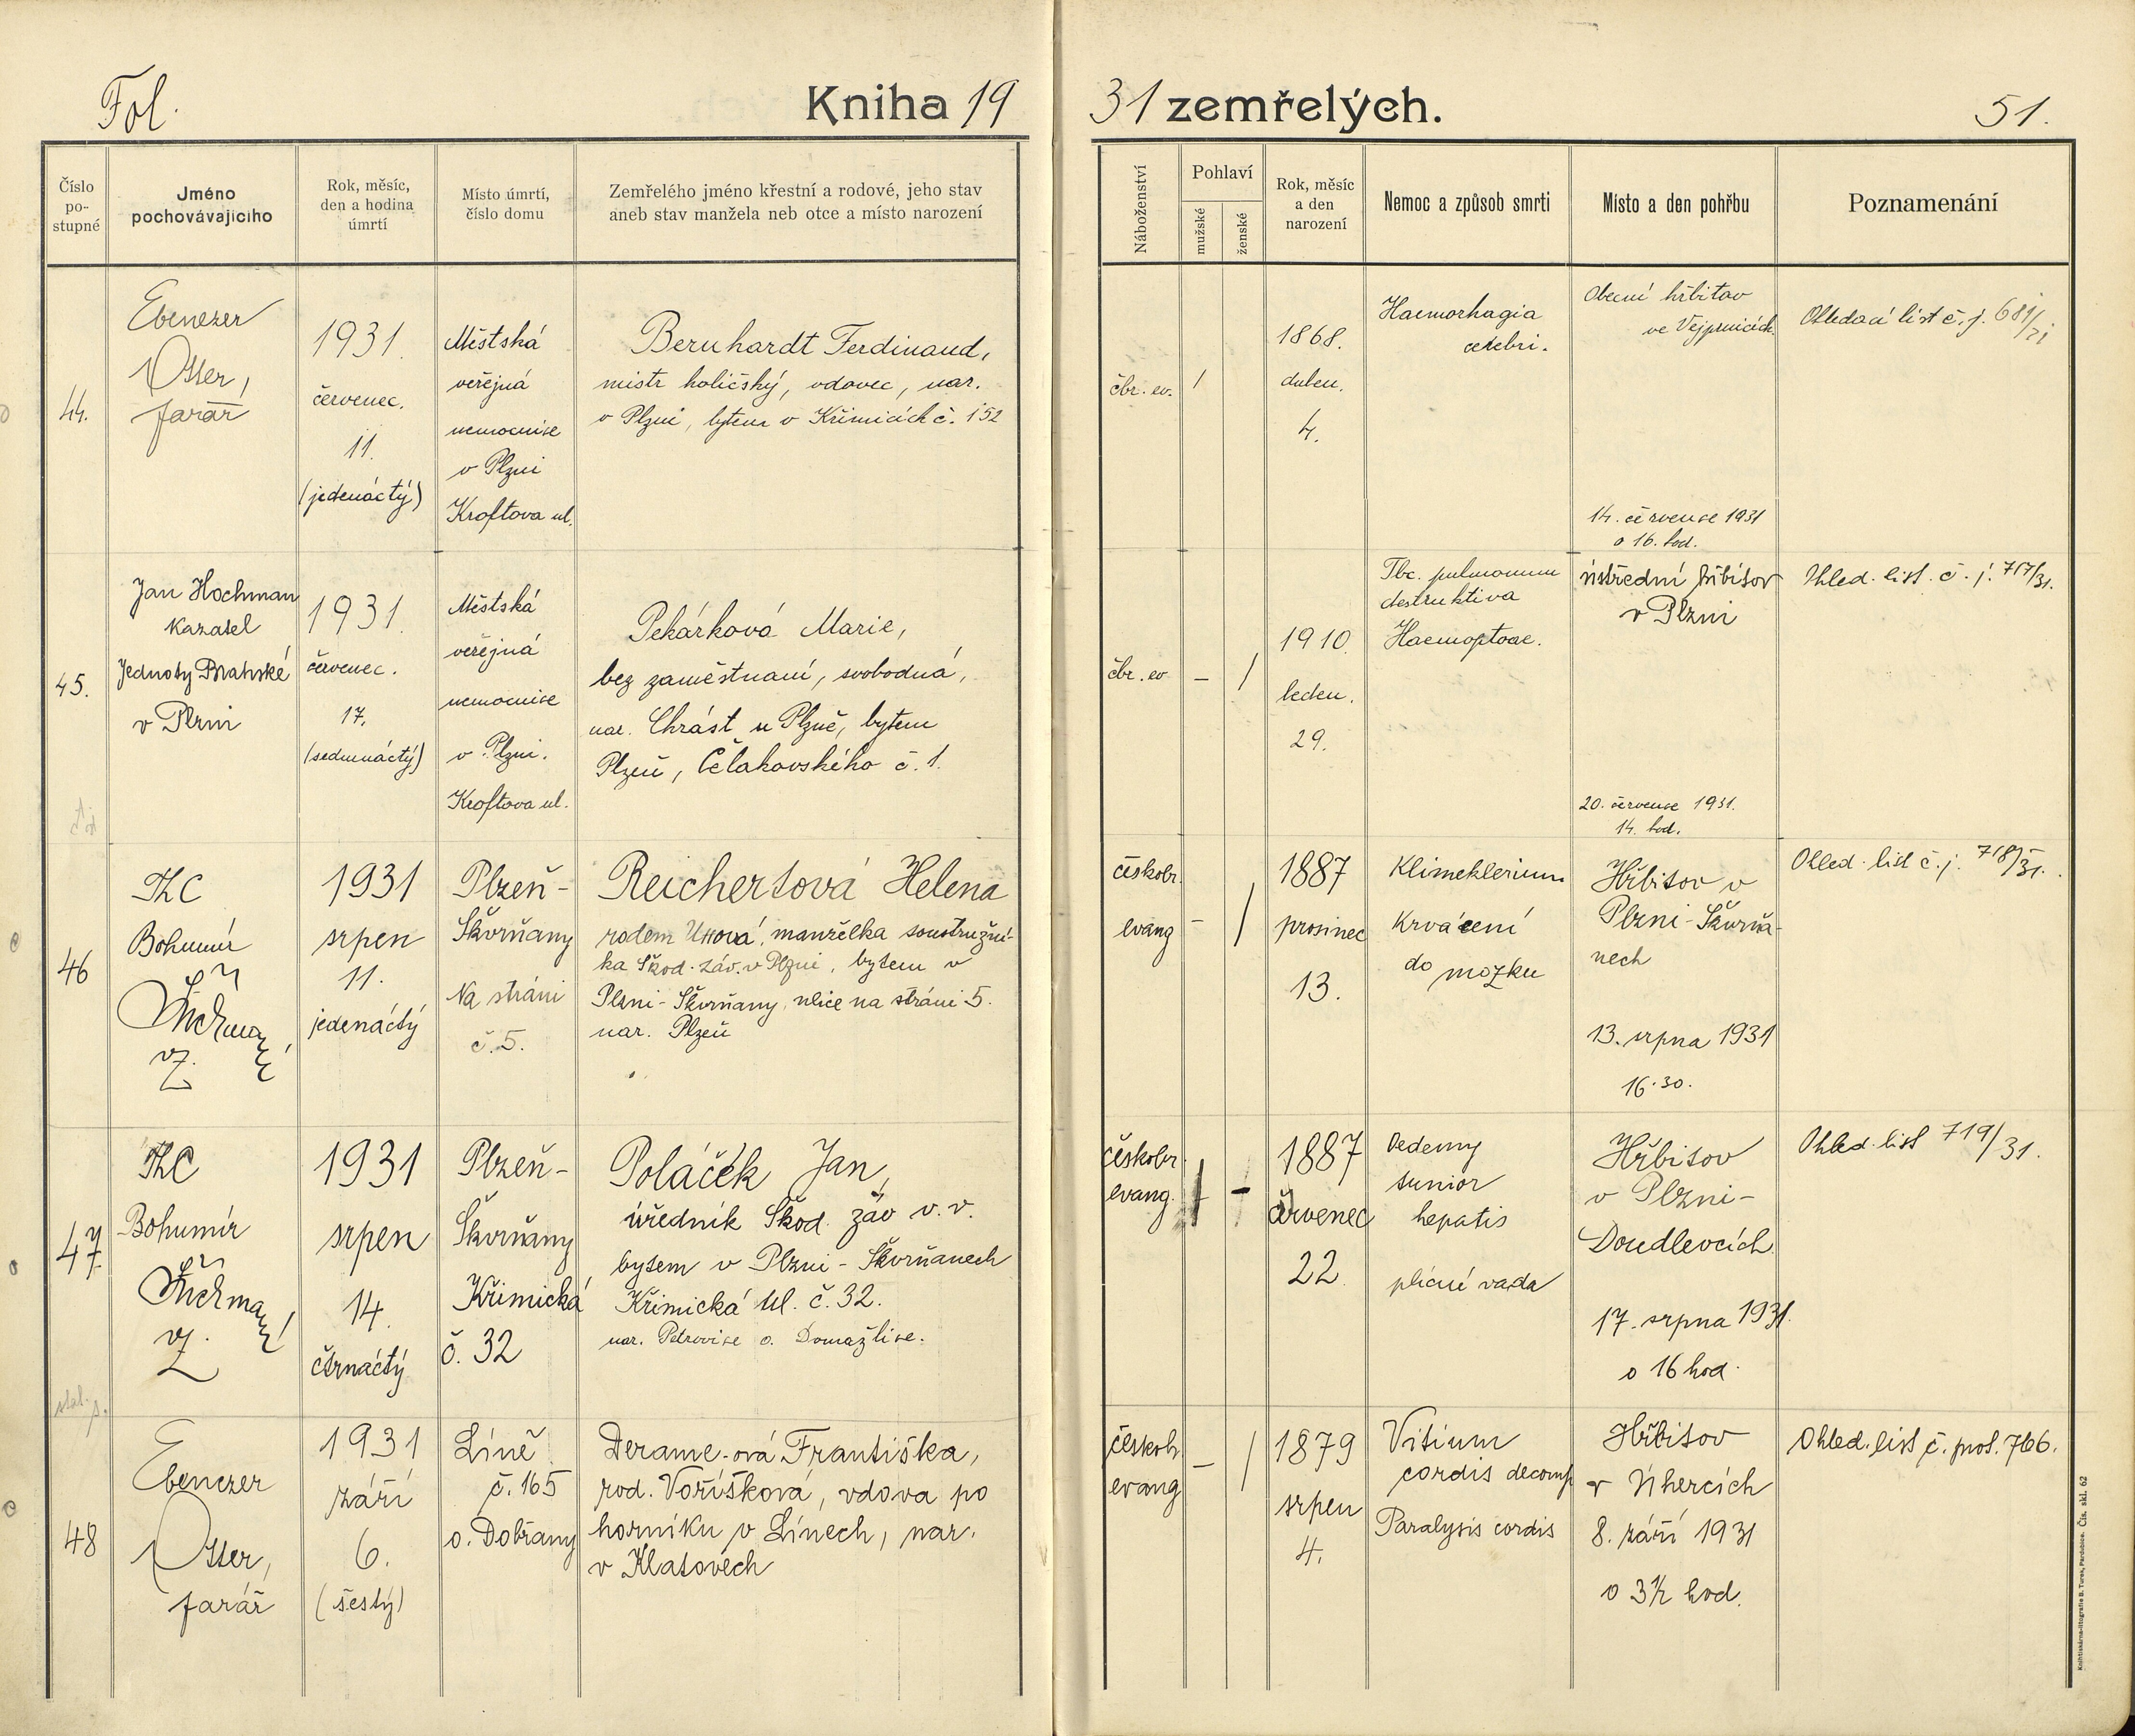 Fol.
Kniha 1931 zemřelých.
51.
Číslo po-stupné
Jméno pochovávajícího
Rok, měsíc, den a hodina úmrtí
Místo úmrtí, číslo domu
Zemřelého jméno křestní a rodové, jeho stav aneb stav manžela neb otce a místo narození
Náboženství
Pohlaví
mužské
ženské
Rok, měsíc a den narození
Nemoc a způsob smrti
Místo a den pohřbu
Poznamenání
44.
Ebenezer
Otter,
farář
1931.
červenec.
11.
(jedenáctý)
Městská
veřejná
nemocnice
v Plzni
Kroftova ul.
Bernhardt Ferdinand,
mistr holičský, vdovec, nar.
v Plzni, bytem v Křimicích č. 152
čbr. ev.
/
1868.
duben.
4.
Haemorhagia
cerebri.
Obecní hřbitov
ve Vejprnicích
14. července 1931
o 16. hod.
Ohledací list č. j. 681/31
45.
Jan Hochman
Kazatel
Jednoty Bratrské
v Plzni
1931.
červenec.
17.
(sedmnáctý)
Městská
veřejná
nemocnice
v Plzni.
Kroftova ul.
Pekárková Marie,
bez zaměstnaní, svobodná,
nar. Chrást u Plzně, bytem
Plzeň, Čelakovského č. 1.
čbr. ev
– /
1910.
leden.
29.
Tbc. pulmonum
destruktiva
Haemoptoae.
ústřední hřbitov
v Plzni
20. července 1931.
14. hod.
Ohled. list. č. j. 717/31.
46
ThC
Bohumír
vz.
1931
srpen
11.
jedenáctý
Plzeň-
Škvrňany
Na stráni
č. 5.
Reichertová Helena
rodem manželka soustružní-
ka Škod. záv. v Plzni, bytem v
Plzni-Škvrňany, ulice na stráni 5.
nar. Plzeň
českobr.
evang
– /
1887
prosinec
13.
Klimeklerium
Krvácení
do mozku
Hřbitov v
Plzni-Škvrňa-
nech
13. srpna 1931
16.30.
Ohled. list č. j. 718/31.
47
ThC
Bohumír
vz.
1931
srpen
14.
čtrnáctý
Plzeň-
Škvrňany
Křimická
č. 32
Poláček Jan,
úředník Škod. záv v. v.
bytem v Plzni-Škvrňanech
Křimická Ul. č. 32.
nar. Petrovice o. Domažlice.
českobr.
evang.
/ –
1887
červenec
22.
Oedemy
tunior
hepatis
plícní vada
Hřbitov
v Plzni-
Doudlevcích
17. srpna 1931.
o 16 hod.
Ohled. list 719/31.
48
Ebenezer
Otter,
farář
1931
září
6.
(šestý)
Líně
č. 165
o. Dobřany
Derame-ová Františka,
rod. Voříšková, vdova po
horníku v Línech, nar.
v Klatovech
českobr.
evang
– /
1879
srpen
4.
Vitium
cordis decomp
Paralysis cordis
Hřbitov
v Úhercích
8. září 1931
o 3½ hod.
Ohled. list č. prot. 766.
Knihtiskárna-litografie B. Turek, Pardubice. Čís. skl. 62